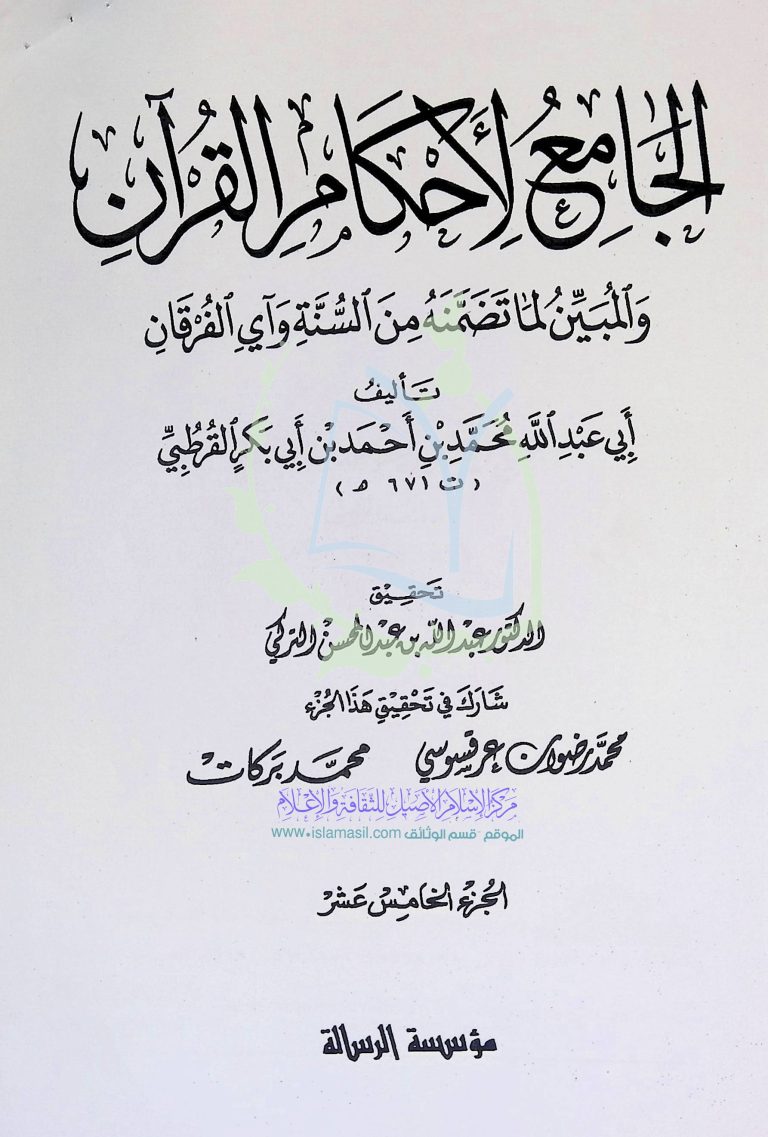 الجَامِعُ لِأَحْكَامِ القُرْآنِ
وَالمُبَيِّنُ لِمَا تَضَمَّنَهُ مِنَ السُّنَّةِ وَآيِ الفُرْقَانِ
تَأليفُ
أَبِي عَبْدِ اللَّهِ مُحَمَّدِ بْنِ أَحْمَدَ بْنِ أَبِي بَكْرٍ القُرْطُبِيِّ
(ت ٦٧١ ه)
تَحقِيْق
الدكتور عبد الله بن عبد المحسن التركي
شَارَكَ فِي تَحْقِيْقِ هَذَا الجُزْءِ
محمَّد رضوان عرقسوسي محمَّد بَركات
مركز الإسلام الأصيل للثقافة والإعلام
الموقع - قسم الوثائق www.islamasil.com
الجُزْء الخَامِسْ عَشَرْ
مؤسسة الرسالة